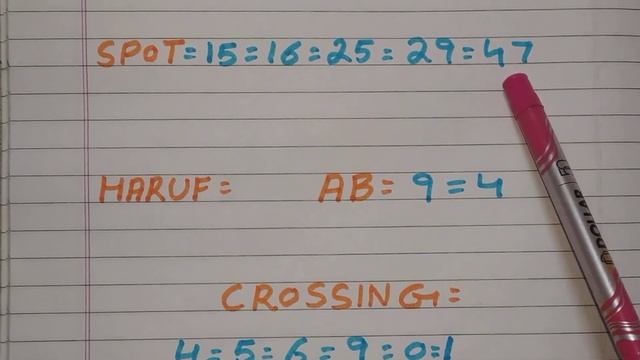 SPOT=15=16=25=29=47
HARUF= AB=9=4
CROSSING=
4=5=6=9=0=1
DOLLAR